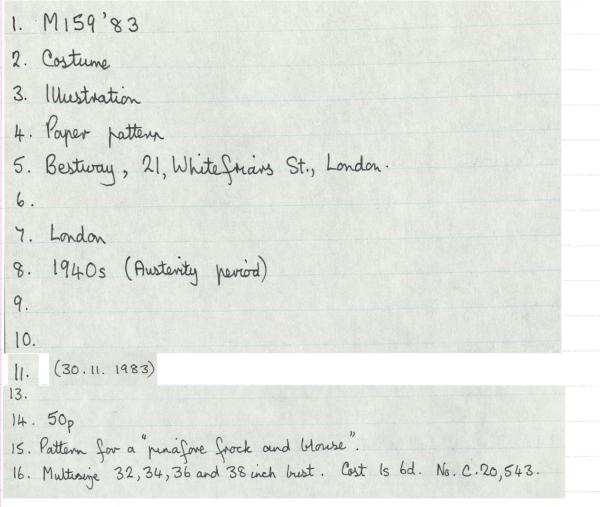 1. M159'83
2. Costume
3. Illustration
4. Paper pattern
5. Bestway, 21, Whitefriars St., London.
6.
7. London
8. 1940s (Austerity period)
9.
10.
11. (30.11.1983)
13.
14. 50p
15. Pattern for a "pinafore frock and blouse".
16. Multisize 32,34,36 and 38 inch bust. Cost 1s 6d. No. C.20,543.